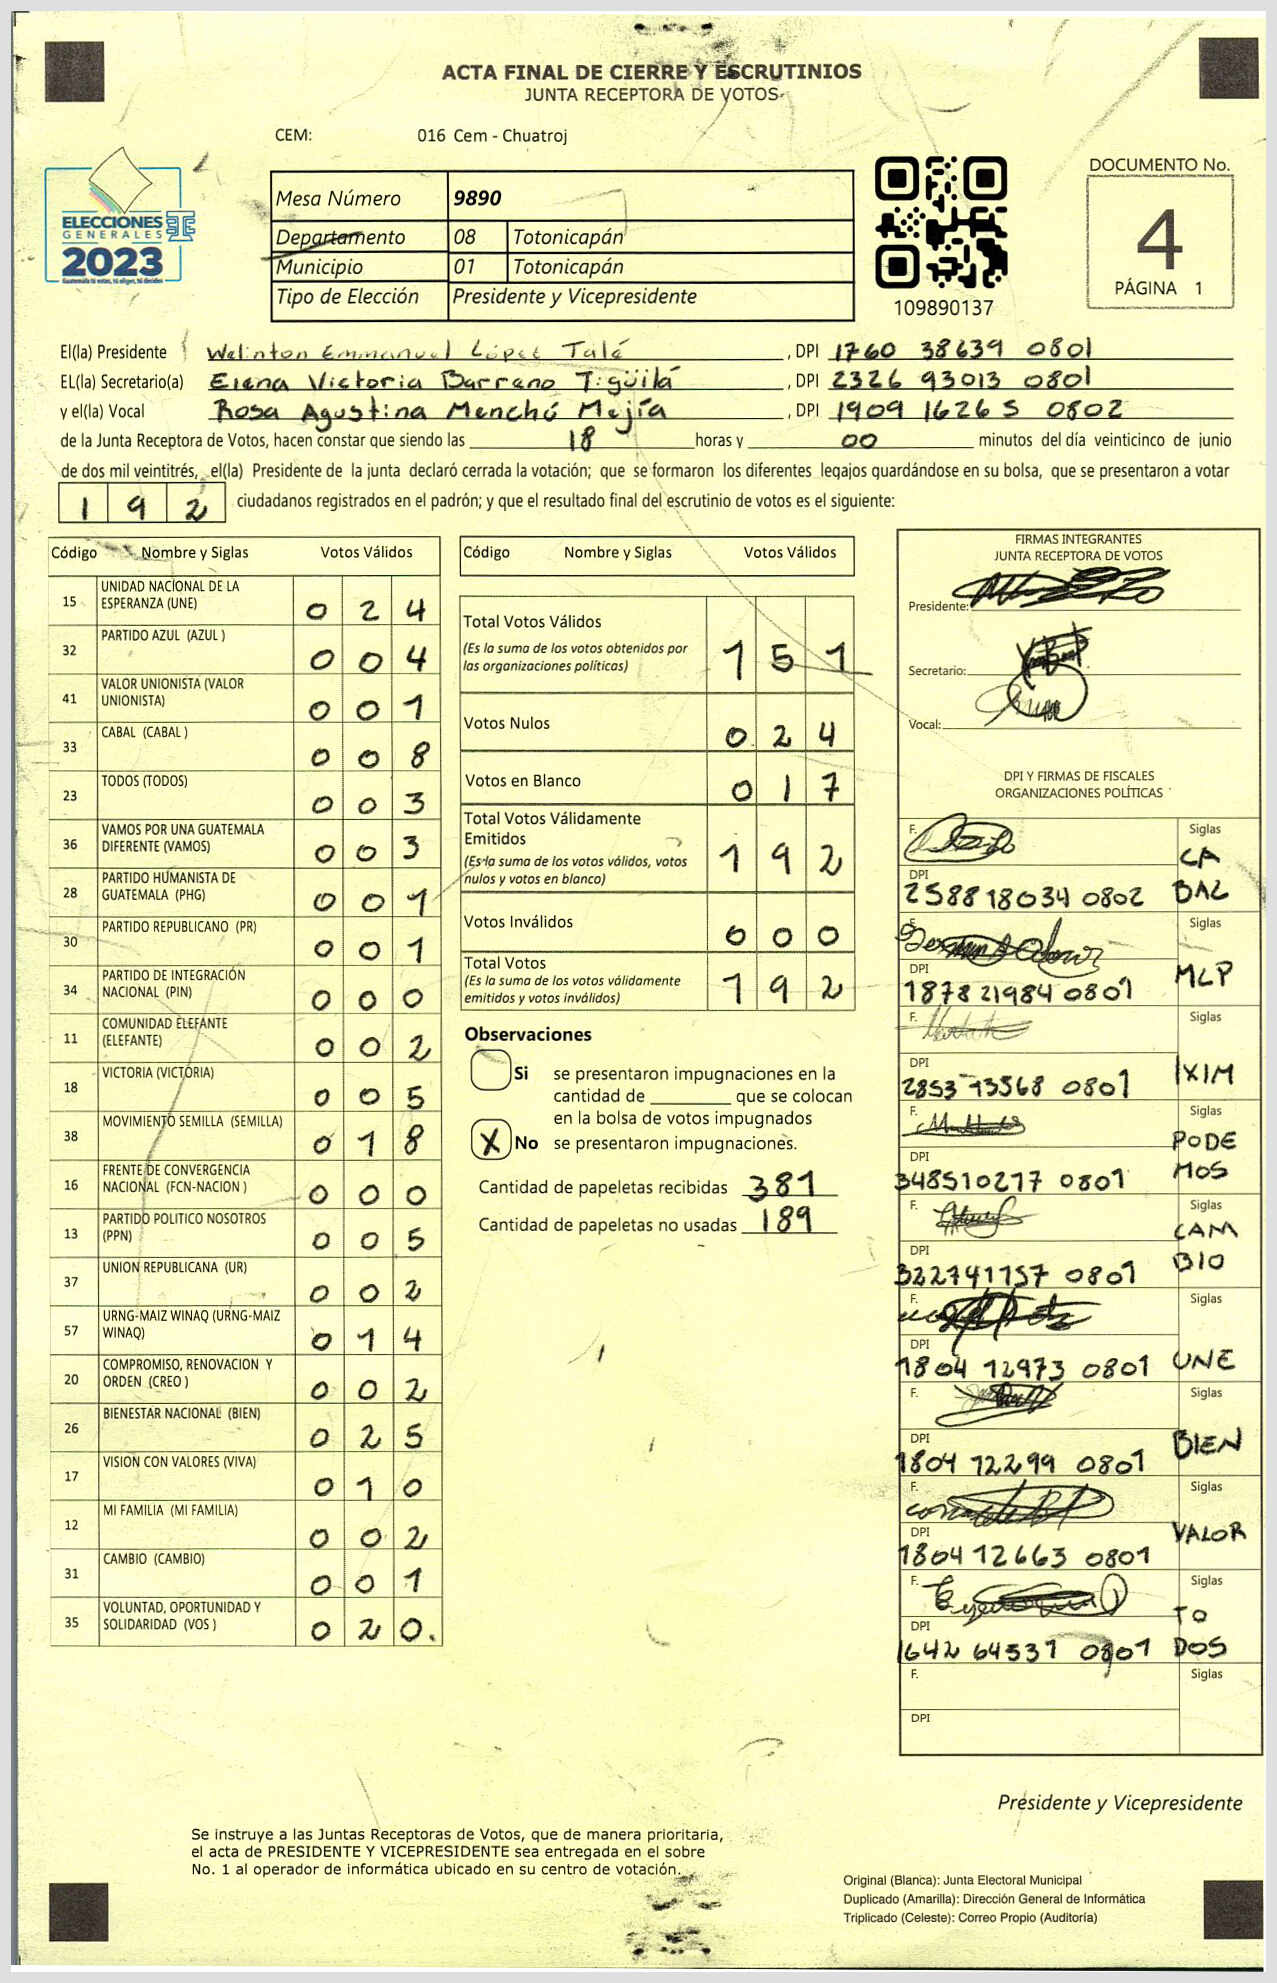 ACTA FINAL DE CIERRE Y ESCRUTINIOS
JUNTA RECEPTORA DE VOTOS
CEM: 016 Cem - Chuatroj
ELECCIONES
GENERALES
2023
Guatemala tú votas, tú eliges, tú decides
Mesa Número 9890
Departamento 08 Totonicapán
Municipio 01 Totonicapán
Tipo de Elección Presidente y Vicepresidente
109890137
DOCUMENTO No.
4
PÁGINA 1
El(la) Presidente Welinton Emmanuel López Talé, DPI 1760 38639 0801
EL(la) Secretario(a) Elena Victoria Barreno Tigüilá, DPI 2326 93013 0801
y el(la) Vocal Rosa Agustina Menchú Mejía, DPI 1909 16265 0802
de la Junta Receptora de Votos, hacen constar que siendo las 18 horas y 00 minutos del día veinticinco de junio
de dos mil veintitrés, el(la) Presidente de la junta declaró cerrada la votación; que se formaron los diferentes legajos guardándose en su bolsa, que se presentaron a votar
192 ciudadanos registrados en el padrón; y que el resultado final del escrutinio de votos es el siguiente:
Código Nombre y Siglas Votos Válidos
15 UNIDAD NACIONAL DE LA ESPERANZA (UNE) 024
32 PARTIDO AZUL (AZUL ) 004
41 VALOR UNIONISTA (VALOR UNIONISTA) 001
33 CABAL (CABAL ) 008
23 TODOS (TODOS) 003
36 VAMOS POR UNA GUATEMALA DIFERENTE (VAMOS) 003
28 PARTIDO HUMANISTA DE GUATEMALA (PHG) 001
30 PARTIDO REPUBLICANO (PR) 001
34 PARTIDO DE INTEGRACIÓN NACIONAL (PIN) 000
11 COMUNIDAD ELEFANTE (ELEFANTE) 002
18 VICTORIA (VICTORIA) 005
38 MOVIMIENTO SEMILLA (SEMILLA) 018
16 FRENTE DE CONVERGENCIA NACIONAL (FCN-NACION ) 000
13 PARTIDO POLITICO NOSOTROS (PPN) 005
37 UNION REPUBLICANA (UR) 002
57 URNG-MAIZ WINAQ (URNG-MAIZ WINAQ) 014
20 COMPROMISO, RENOVACION Y ORDEN (CREO ) 002
26 BIENESTAR NACIONAL (BIEN) 025
17 VISION CON VALORES (VIVA) 010
12 MI FAMILIA (MI FAMILIA) 002
31 CAMBIO (CAMBIO) 001
35 VOLUNTAD, OPORTUNIDAD Y SOLIDARIDAD (VOS ) 020.
Código Nombre y Siglas Votos Válidos
Total Votos Válidos 151
(Es la suma de los votos obtenidos por
las organizaciones políticas)
Votos Nulos 024
Votos en Blanco 017
Total Votos Válidamente
Emitidos 192
(Es la suma de los votos válidos, votos
nulos y votos en blanco)
Votos Inválidos 000
Total Votos 192
(Es la suma de los votos válidamente
emitidos y votos inválidos)
Observaciones
Si se presentaron impugnaciones en la
cantidad de ________ que se colocan
en la bolsa de votos impugnados
X No se presentaron impugnaciones.
Cantidad de papeletas recibidas 381
Cantidad de papeletas no usadas 189
FIRMAS INTEGRANTES
JUNTA RECEPTORA DE VOTOS
Presidente:
Secretario:
Vocal:
DPI Y FIRMAS DE FISCALES
ORGANIZACIONES POLÍTICAS
F. Siglas CABAL
DPI 2588 18034 0802
F. Siglas MLP
DPI 1878 21984 0801
F. Siglas IXIM
DPI 2853 13568 0801
F. Siglas PODEMOS
DPI 348510217 0801
F. Siglas CAMBIO
DPI 322741157 0801
F. Siglas UNE
DPI 1804 12973 0801
F. Siglas BIEN
DPI 1804 12299 0801
F. Siglas VALOR
DPI 1804 12663 0801
F. Siglas TODOS
DPI 1642 64531 0801
F. Siglas
DPI
Presidente y Vicepresidente
Se instruye a las Juntas Receptoras de Votos, que de manera prioritaria,
el acta de PRESIDENTE Y VICEPRESIDENTE sea entregada en el sobre
No. 1 al operador de informática ubicado en su centro de votación.
Original (Blanca): Junta Electoral Municipal
Duplicado (Amarilla): Dirección General de Informática
Triplicado (Celeste): Correo Propio (Auditoría)